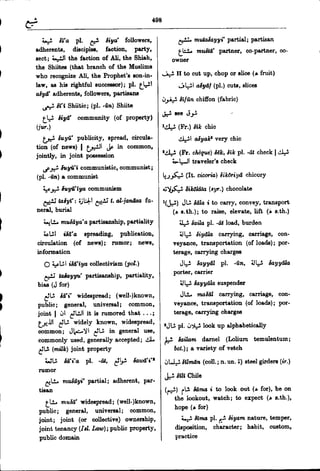 498
شيعة šī‘a pl. شيع šiya‘ followers,
adherents, disciples, faction, party,
sect; الشيعة the faction of Ali, the Shiah,
the Shiites (that branch of the Muslims
who recognize Ali, the Prophet's son-in-
law, as his rightful successor); pl. اشياع
ašyā‘ adherents, followers, partisans
شيعي šī‘ī Shiitic; (pl. -ūn) Shiite
شياع šiyā‘ community (of property)
(jur.)
شيوع šuyū‘ publicity, spread, circula-
tion (of news) | على الشيوع in common,
jointly, in joint possession
شيوعي šuyū‘ī communistic, communist;
(pl. -ūn) a communist
شيوعية šuyū‘īya communism
تشييع tašyī‘: تشييع الجنازة t. al-janāza fu-
neral, burial
مشايعة mušāya‘a partisanship, partiality
اشاعة išā‘a spreading, publication,
circulation (of news); rumor; news,
information
اشاعية išā‘īya collectivism (pol.)
تشيع tašayyu‘ partisanship, partiality,
bias (ل for)
شائع šā’i‘ widespread; (well-)known,
public; general, universal; common,
joint | الشائع ان it is rumored that ...;
شائع الذكر widely known, widespread,
common; شائع الاستعمال in general use,
commonly used, generally accepted; ملك
شائع (milk) joint property
شائعة šā’i‘a pl. -āt, شوائع šawā’i‘²
rumor
مشايع mušāyi‘ partial; adherent, par-
tisan
مشاع mušā‘ widespread; (well-)known,
public; general, universal; common,
joint; joint (or collective) ownership,
joint tenancy (Isl. Law); public property,
public domain
متشيع mutašayyi‘ partial; partisan
مشايع mušāi‘ partner, co-partner, co-
owner
شيف II to cut up, chop or slice (a fruit)
اشياف ašyāf (pl.) cuts, slices
شيفون šīfūn chiffon (fabric)
شيق see شوق
¹شيك (Fr.) šīk chic
اشيك ašyak² very chic
²شيك (Fr. chèque) šēk, šīk pl. -āt check | شيك
سياحي traveler's check
شيكوريا (It. cicoria) šikōriyā chicory
شيكولاتة šikōlāta (syr.) chocolate
¹(شيل) شال šāla i to carry, convey, transport
(ه s.th.); to raise, elevate, lift (ه s.th.)
شيلة šaila pl. -āt load, burden
شيالة šiyāla carrying, carriage, con-
veyance, transportation (of loads); por-
terage, carrying charges
شيال šayyāl pl. -ūn, شيالة šayyāla
porter, carrier
شيالة šayyāla suspender
مشال mašāl carrying, carriage, con-
veyance, transportation (of loads); por-
terage, carrying charges
²شال pl. شيلان look up alphabetically
شيلم šailam darnel (Lolium temulentum;
bot.); a variety of vetch
شيلمان šīlmān (coll.; n. un. ة) steel girders (ir.)
شيلي šīlī Chile
(شيم) شام šāma i to look out (ه for), be on
the lookout, watch; to expect (ه s.th.),
hope (ه for)
شيمة šīma pl. شيم šiyam nature, temper,
disposition, character; habit, custom,
practice